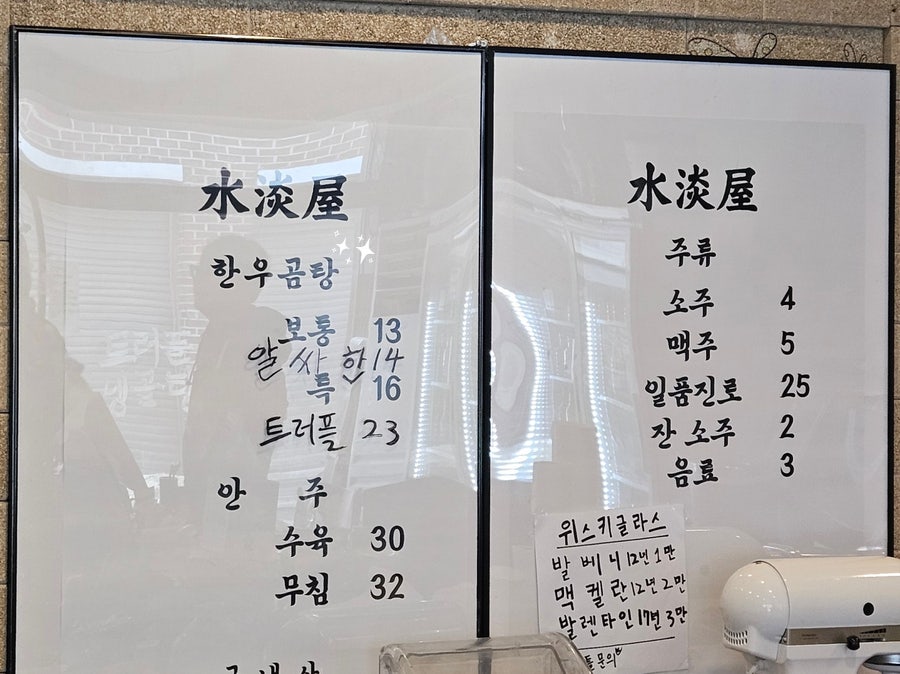 水淡屋
한우곰탕
보통 13
알싸한 14
특 16
트러플 23
안 주
수육 30
무침 32
水淡屋
주류
소주 4
맥주 5
일품진로 25
잔 소주 2
음료 3
위스키글라스
발베니 12년 1만
맥켈란 12년 2만
발렌타인 17년 3만
문의